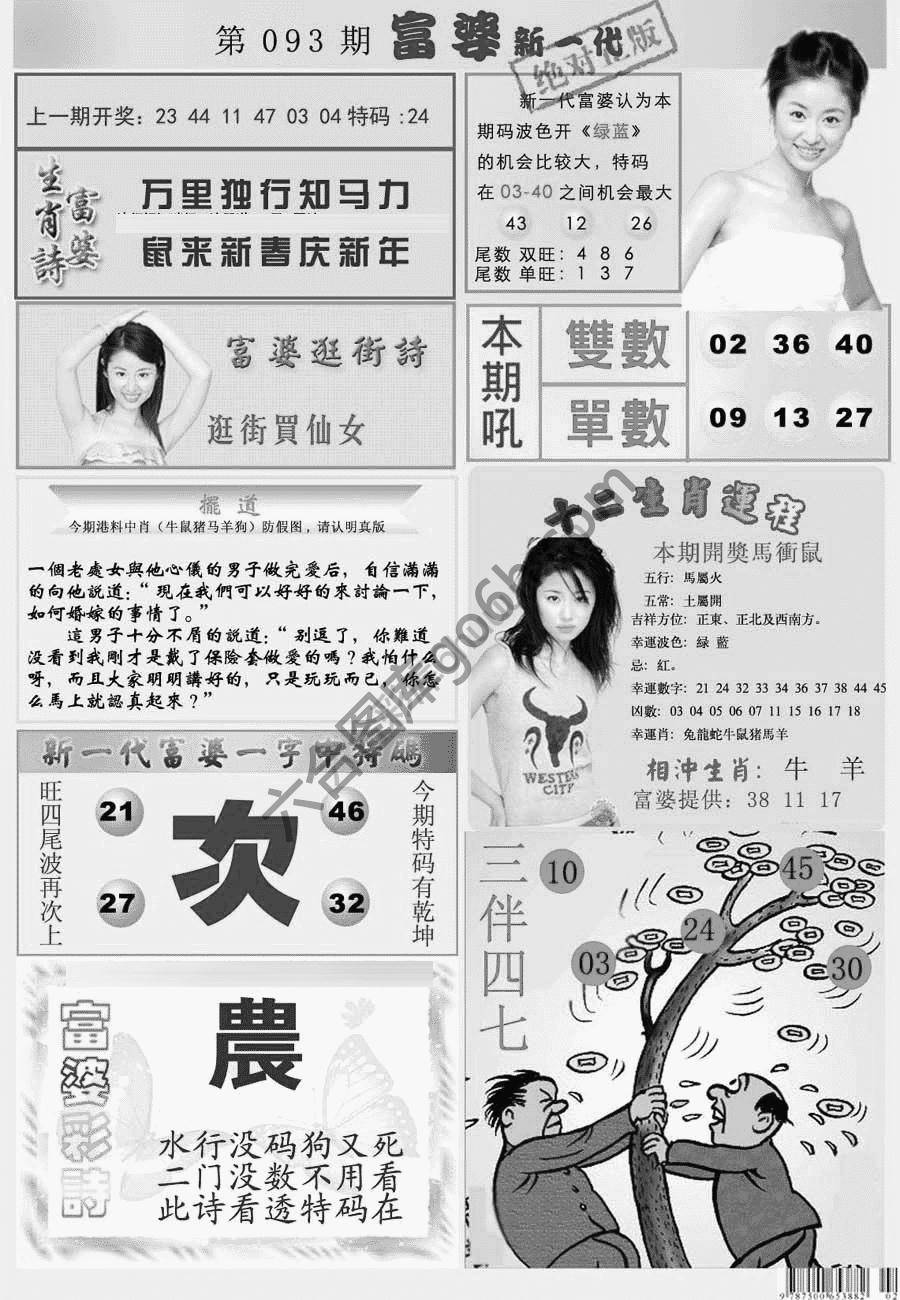 第 093 期 富婆 新一代
绝对绝版
上一期开奖：23 44 11 47 03 04 特码 :24
生肖詩
富婆
万里独行知马力
鼠来新春庆新年
新一代富婆认为本
期码波色开《绿蓝》
的机会比较大，特码
在 03-40 之间机会最大
43 12 26
尾数 双旺：4 8 6
尾数 单旺：1 3 7
富婆逛街詩
逛街買仙女
本期吼
雙數 02 36 40
單數 09 13 27
擺道
今期港料中肖（牛鼠猪马羊狗）防假图，请认明真版
一個老處女與他心儀的男子做完爱后，自信滿滿
的向他説道：“現在我們可以好好的來討論一下，
如何婚嫁的事情了。”
這男子十分不屑的説道：“别逗了，你難道
没看到我剛才是戴了保險套做愛的嗎？我怕什么
呀，而且大家明明講好的，只是玩玩而已，你怎
么馬上就認真起來？”
十二生肖運程
本期開獎馬衝鼠
五行：馬屬火
五常：土屬開
吉祥方位：正東、正北及西南方。
幸運波色：緑 藍
忌：紅。
幸運數字：21 24 32 33 34 36 37 38 44 45
凶數：03 04 05 06 07 11 15 16 17 18
幸運肖：兔龍蛇牛鼠猪馬羊
相沖生肖：牛 羊
富婆提供：38 11 17
WESTERN
CITY
新一代富婆一字中特碼
旺四尾波再次上
21 46
次
27 32
今期特码有乾坤
三伴四七
10 45
24
03 30
富婆彩詩
農
水行没码狗又死
二门没数不用看
此诗看透特码在
六合图库go6h.com
9 787500 653882 02